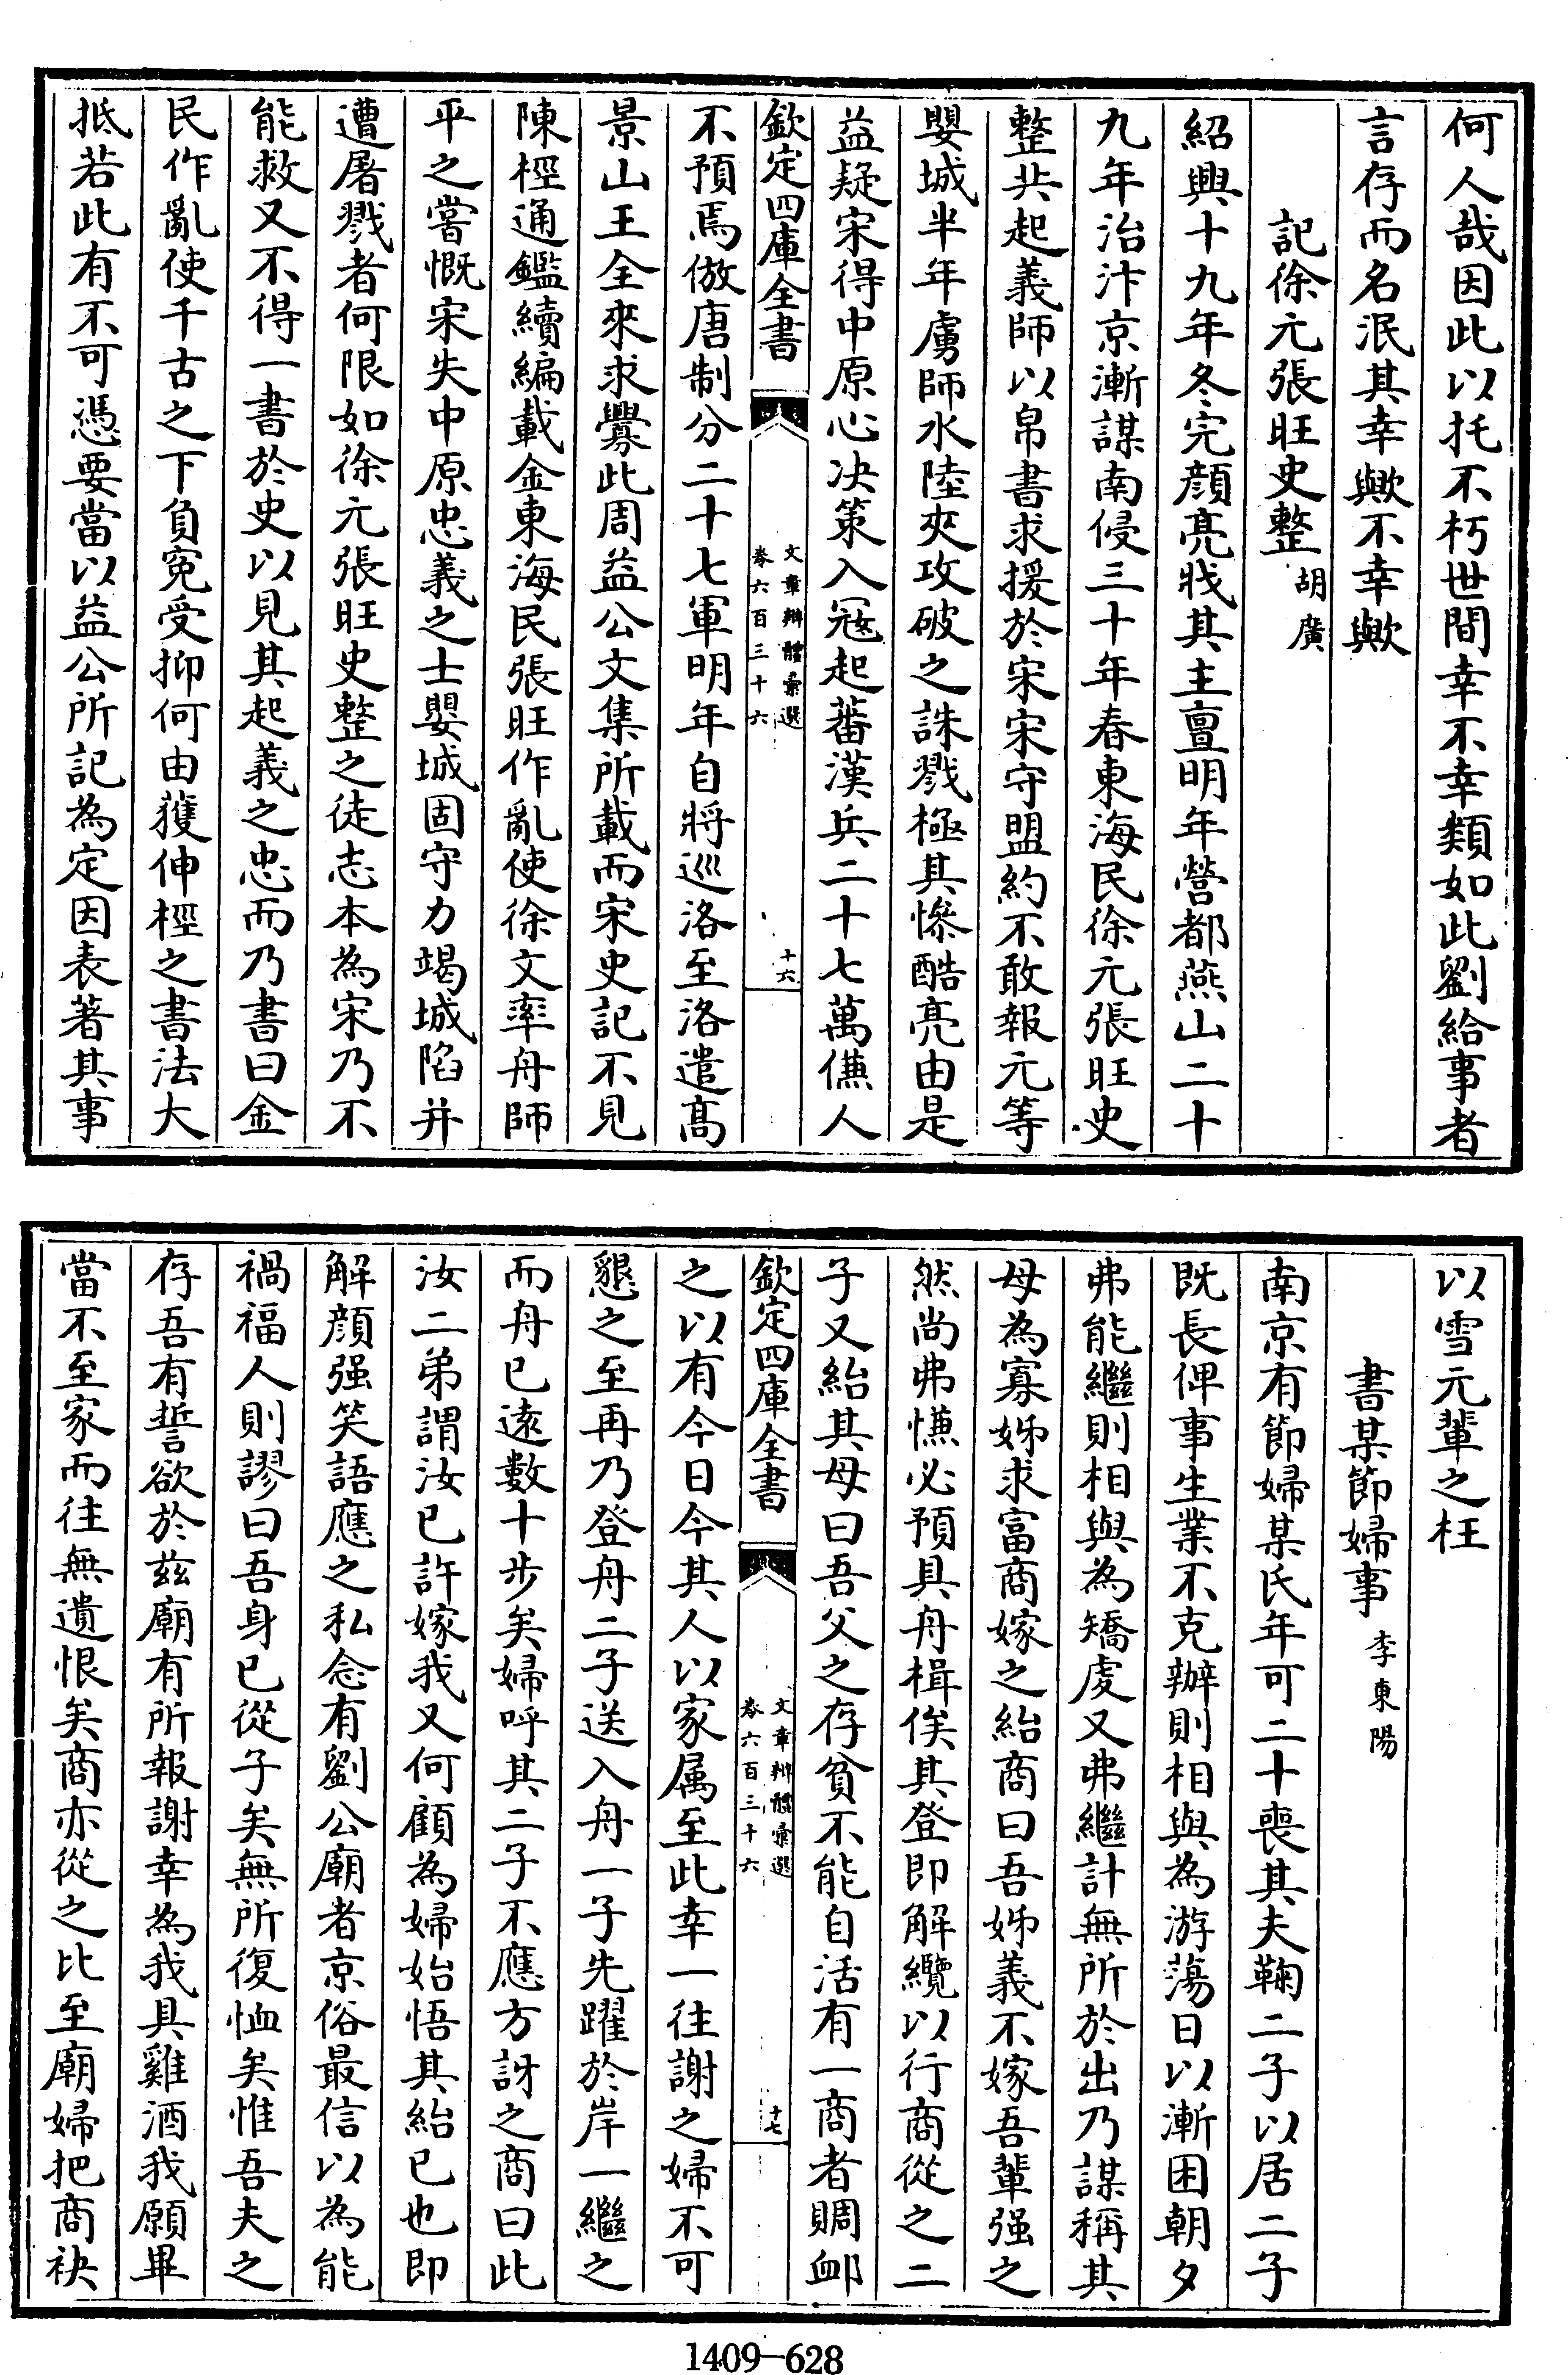 何人哉因此以托不朽世間幸不幸類如此劉給事者
言存而名泯其幸歟不幸歟
記徐元張旺史整胡廣
紹興十九年冬完顔亮戕其主亶明年營都燕山二十
九年治汴京漸謀南侵三十年春東海民徐元張旺史
整共起義師以帛書求援於宋宋守盟約不敢報元等
嬰城半年虜師水陸夾攻破之誅戮極其慘酷亮由是
益疑宋得中原心决策入冦起蕃漢兵二十七萬傔人
欽定四庫全書
文章辨體彚選
卷六百三十六
十六
不預焉倣唐制分二十七軍明年自將巡洛至洛遣髙
景山王全來求釁此周益公文集所載而宋史記不見
陳桱通鑑續編載金東海民張旺作亂使徐文率舟師
平之嘗慨宋失中原忠義之士嬰城固守力竭城陷并
遭屠戮者何限如徐元張旺史整之徒志本為宋乃不
能救又不得一書於史以見其起義之忠而乃書曰金
民作亂使千古之下負寃受抑何由獲伸桱之書法大
抵若此有不可憑要當以益公所記為定因表著其事
以雪元輩之枉
書某節婦事李東陽
南京有節婦某氏年可二十喪其夫鞠二子以居二子
既長俾事生業不克辦則相與為游蕩日以漸困朝夕
弗能繼則相與為矯虔又弗繼計無所於出乃謀稱其
母為寡姊求富商嫁之紿商曰吾姊義不嫁吾輩强之
然尚弗慊必預具舟楫俟其登即解纜以行商從之二
子又紿其母曰吾父之存貧不能自活有一商者賙䘏
欽定四庫全書
文章辨體彚選
卷六百三十六
十七
之以有今日今其人以家屬至此幸一往謝之婦不可
懇之至再乃登舟二子送入舟一子先躍於岸一繼之
而舟已遠數十步矣婦呼其二子不應方訝之商曰此
汝二弟謂汝已許嫁我又何顧為婦始悟其紿已也即
解顔强笑語應之私念有劉公廟者京俗最信以為能
禍福人則謬曰吾身已從子矣無所復恤矣惟吾夫之
存吾有誓欲於兹廟有所報謝幸為我具雞酒我願畢
當不至家而往無遺恨矣商亦從之比至廟婦把商袂
1409-628